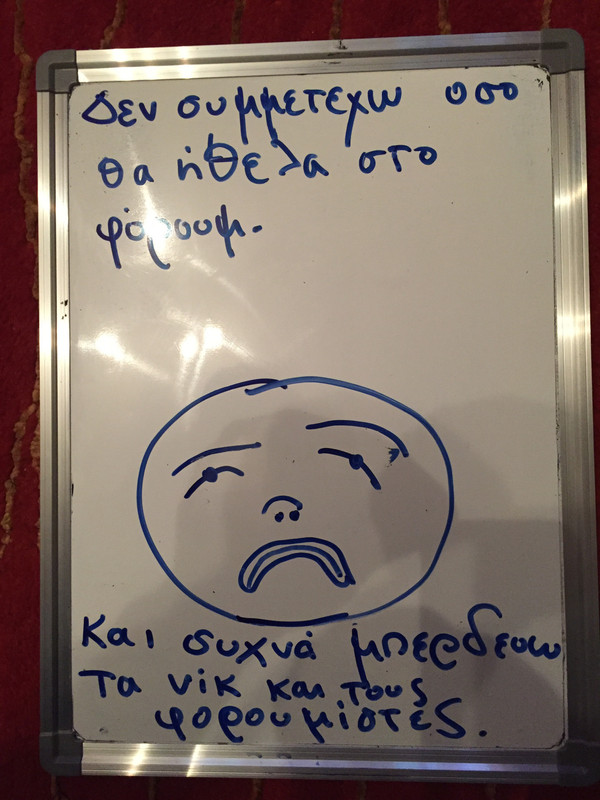 Δεν συμμετεχω οσο
θα ήθελα στο
φόρουμ.
Και συχνά μπερδευω
τα νικ και τους
φορουμίστες.